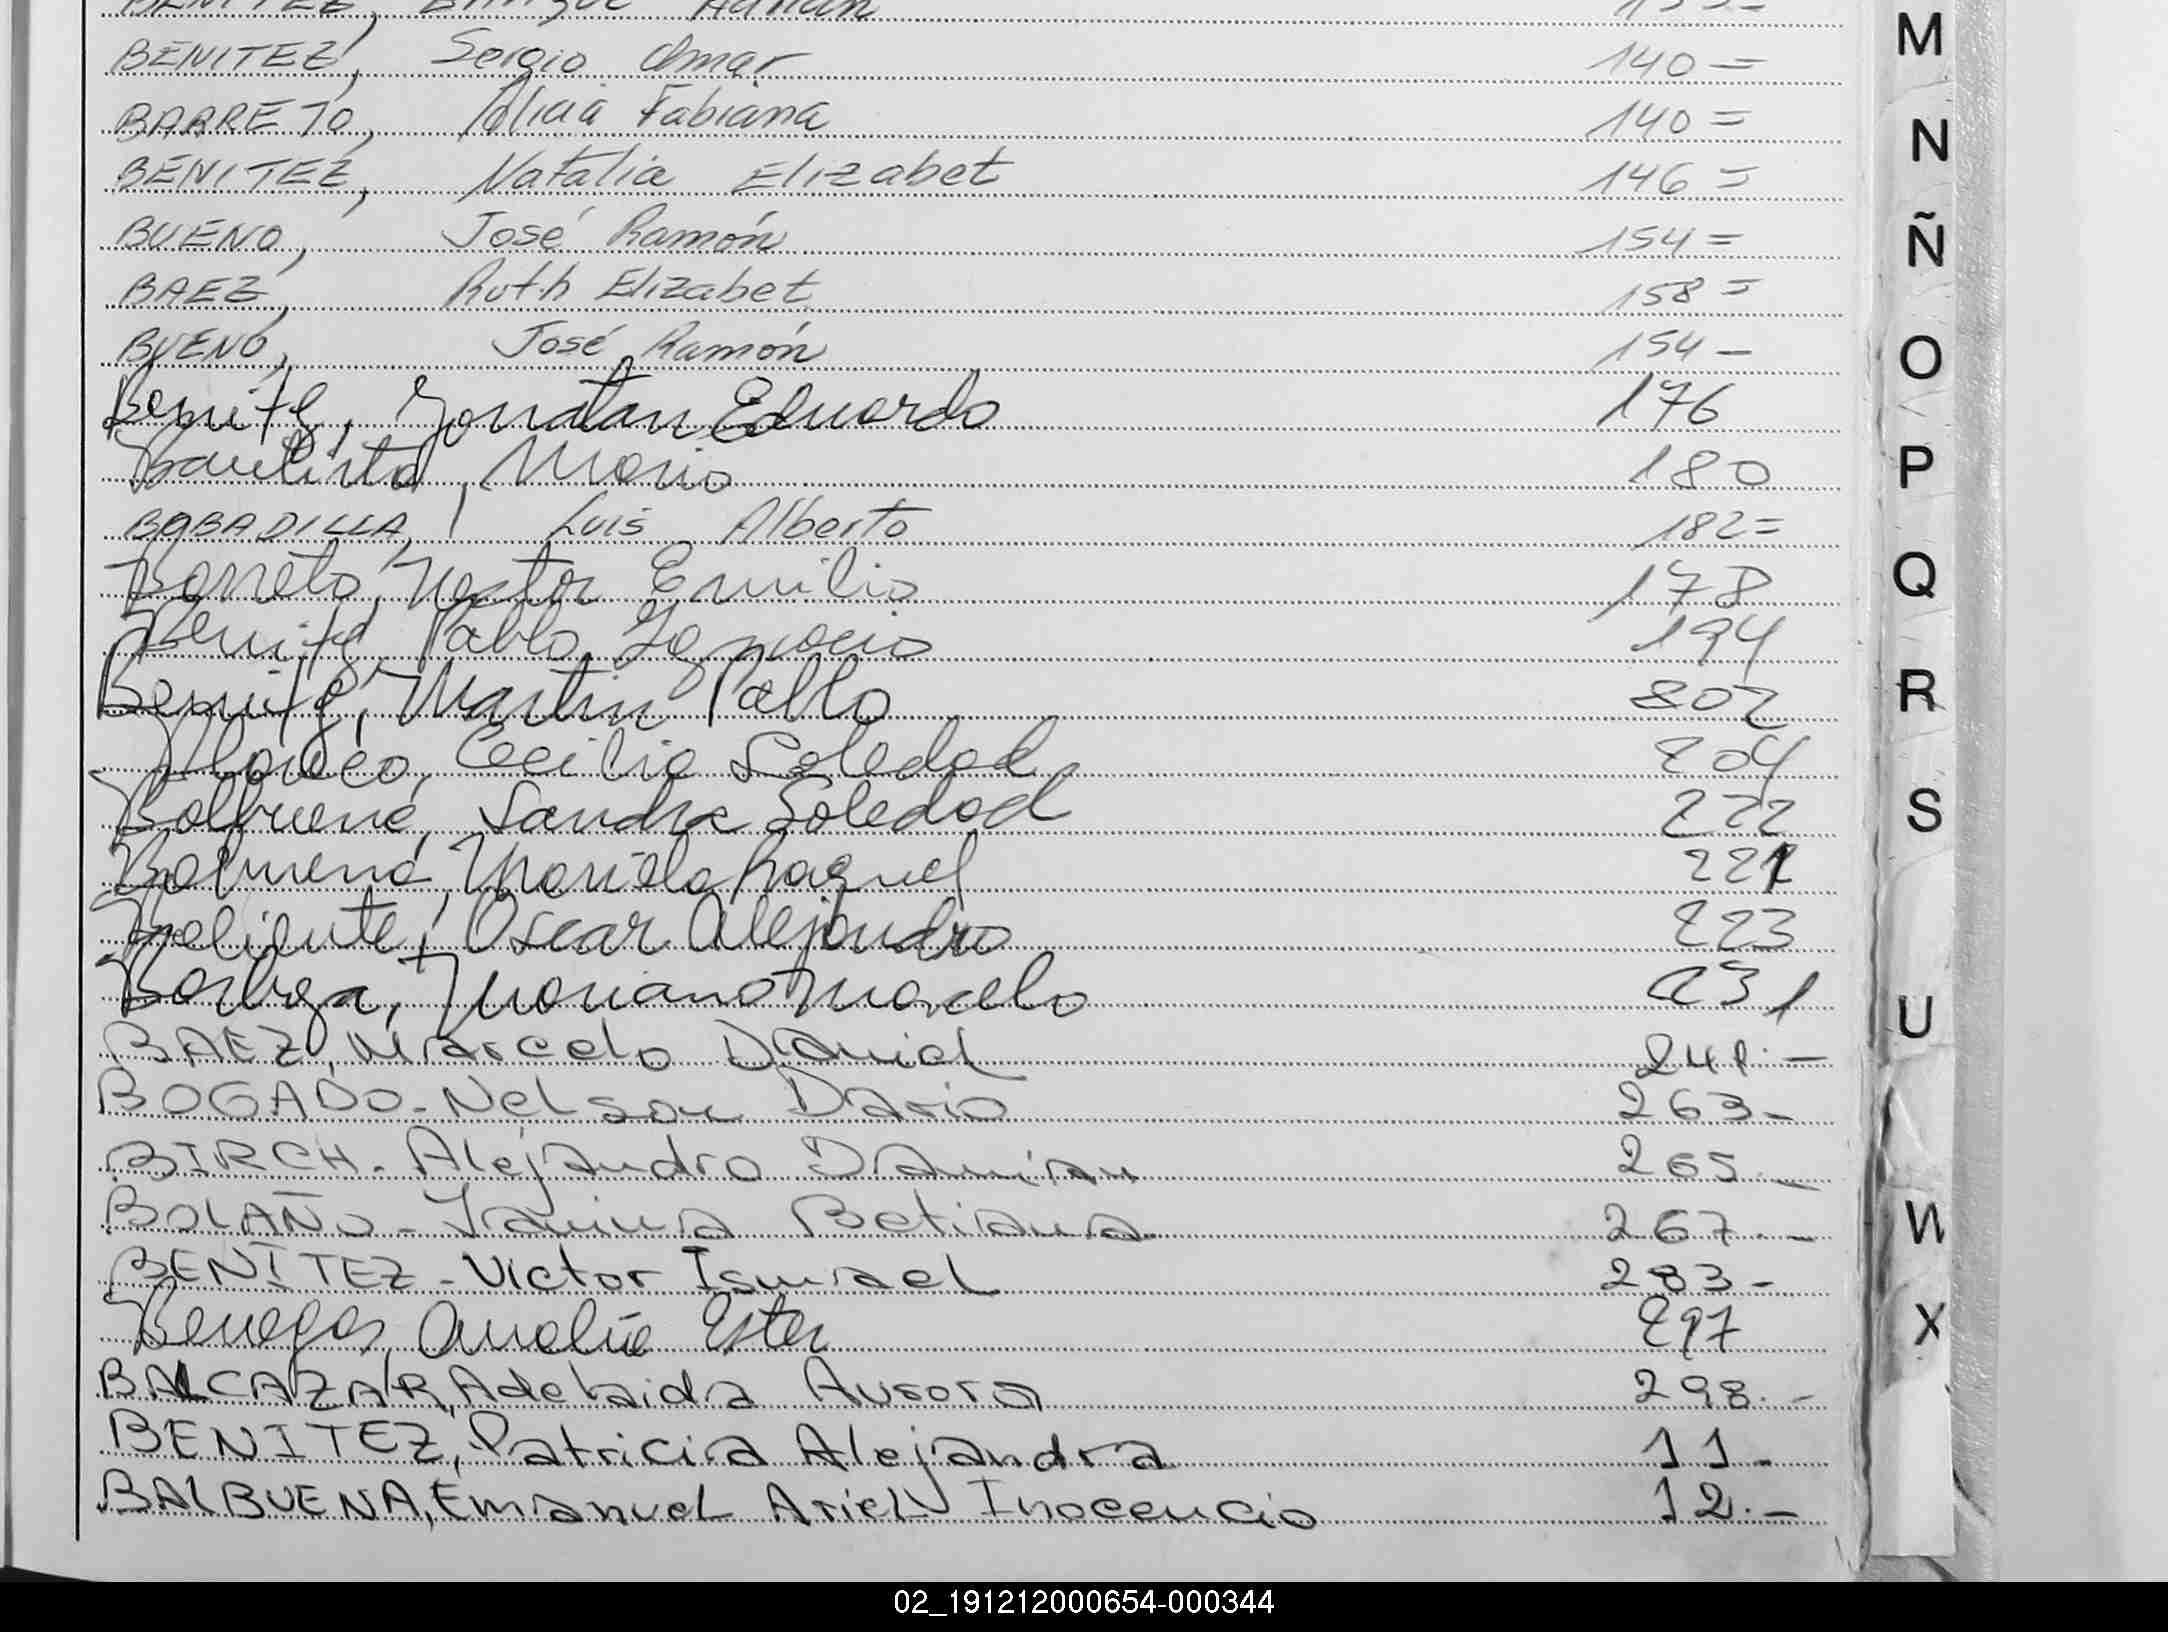 BENITEZ, Enrique Adrián
BENITEZ, Sergio Omar 140=
BARRETO, Alicia Fabiana 140=
BENITEZ, Natalia Elizabet 146=
BUENO, José Ramón 154=
BAEZ, Ruth Elizabet 158=
BUENO, José Ramón 154-
Benitez, Jonatan Eduardo 176
Bautista, Mario 180
BOBADILLA, Luis Alberto 182=
Barreto, Nestor Emilio 178
Benitez, Pablo Ignacio 194
Benitez, Martin Pablo 802
Cecilia Soledad 204
Balbuena, Sandra Soledad 222
Balbuena, Mariela Raquel 221
Oscar Alejandro 223
Mariano Marcelo 231
BAEZ, Marcelo Daniel 241.-
BOGADO-Nelson Dario 263-
BIRCH-Alejandro Damian 265.-
BOLAÑO-Yanina Betiana 267.-
BENITEZ-Victor Ismael 283-
Benegas, Amalia Ester 297
BALCAZAR, Adelaida Aurora 298.-
BENITEZ, Patricia Alejandra 11-
BALBUENA, Emanuel Ariel Inocencio 12.-
M
N
Ñ
O
P
Q
R
S
U
W
X
02_191212000654-000344